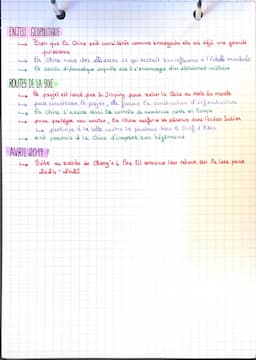 ENJEU GEOPOLITIQUE
→ Bien que la Chine soit considérée comme émergente elle est déjà une grande
puissance
→ la Chine noue des alliances ce qui accroit son influence à l'échelle mondiale
→ Sa société diplomatique s'accompagne d'un déploiement militaire
ROUTES DE LA SOIE
→ le projet est lancé par Xi Jinping pour relier la Chine au reste du monde
→ pour concrétiser le projet, elle finance la construction d'infrastructures
→ la Chine s'assure ainsi le contrôle de nombreux ports en Europe
→ pour protéger ses routes, la Chine renforce sa présence dans l'océan Indien
↳ participe à la lutte contre la piraterie dans le Golf d'Aden
→ ont permis à la Chine d'imposer son hégémonie
AVRIL 2019
→ Suite au succès de Chang'e 4 les EU annonce leur retour sur la lune pour
2024-2025